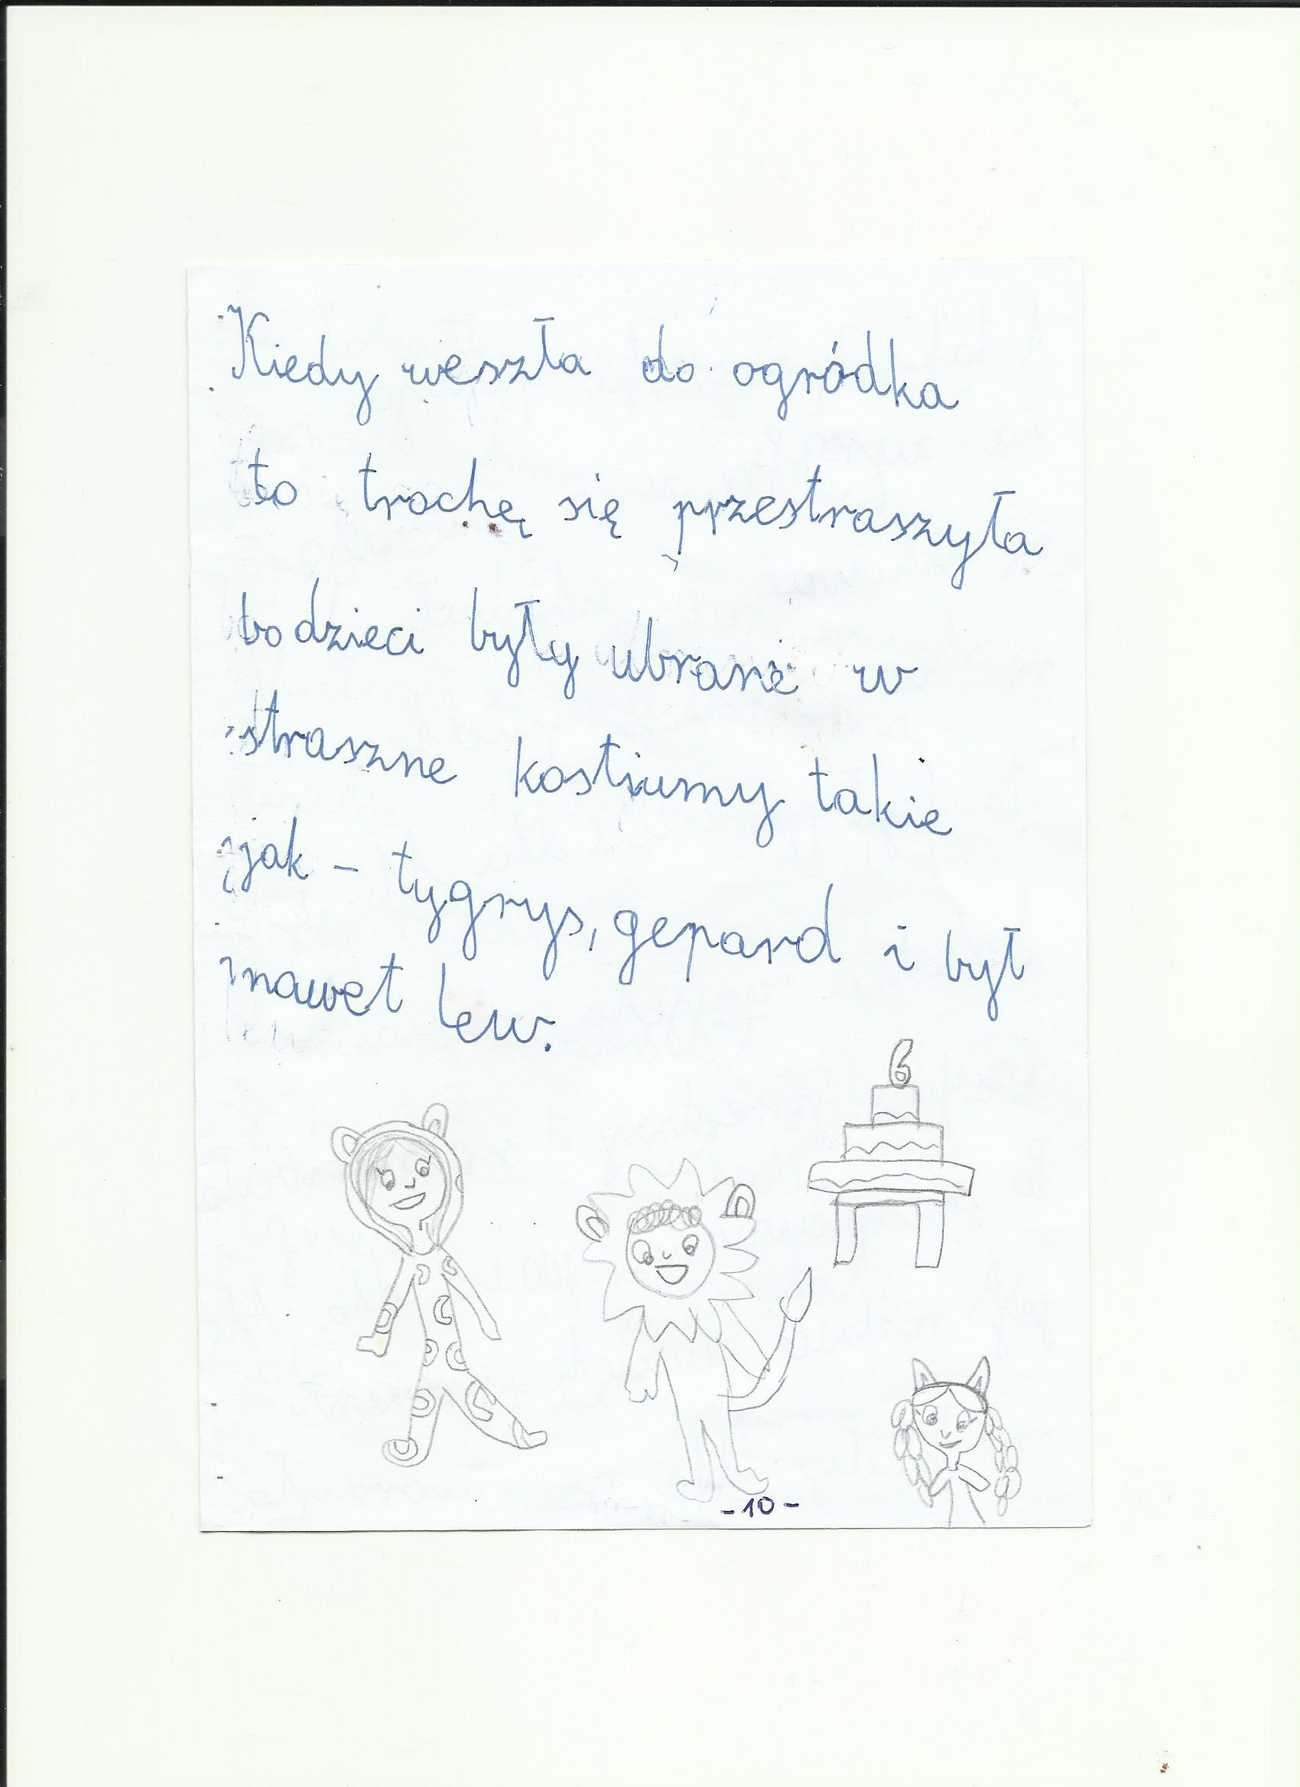 Kiedy weszła do ogródka
to trochę się przestraszyła
bo dzieci były ubrane w
straszne kostiumy takie
jak - tygrys, gepard i był
nawet lew.
6
- 10 -